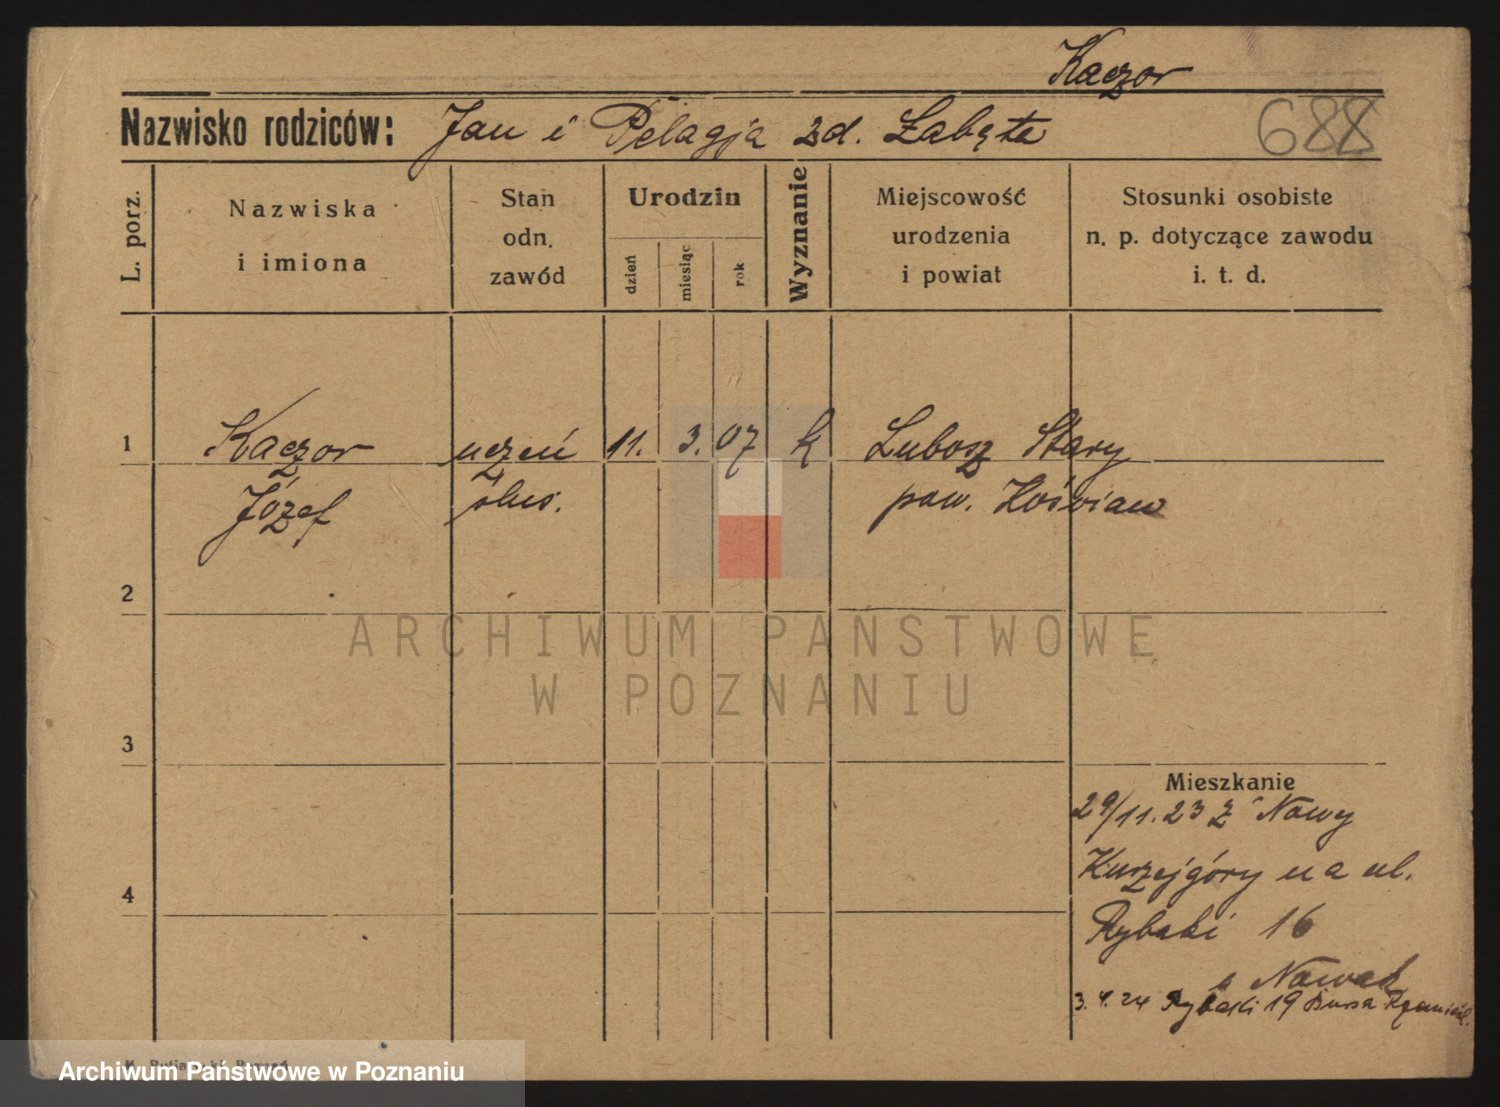 Kaczor
Nazwisko rodziców: Jan i Pelagja zd. Łabęta
688
L. porz.
Nazwiska
i imiona
Stan
odn.
zawód
Urodzin
dzień
miesiąc
rok
Wyznanie
Miejscowość
urodzenia
i powiat
Stosunki osobiste
n. p. dotyczące zawodu
i. t. d.
1 Kaczor uczeń 11. 3. 07 k Lubosz Stary
Józef ślus. pow. Kościan
2
3
4
Mieszkanie
29/11. 23 z Nowy
Kurzejgóry na ul.
Rybaki 16
Nowak
3. 4. 24 Rybaki 19 Bursa
ARCHIWUM PAŃSTWOWE
W POZNANIU
Archiwum Państwowe w Poznaniu